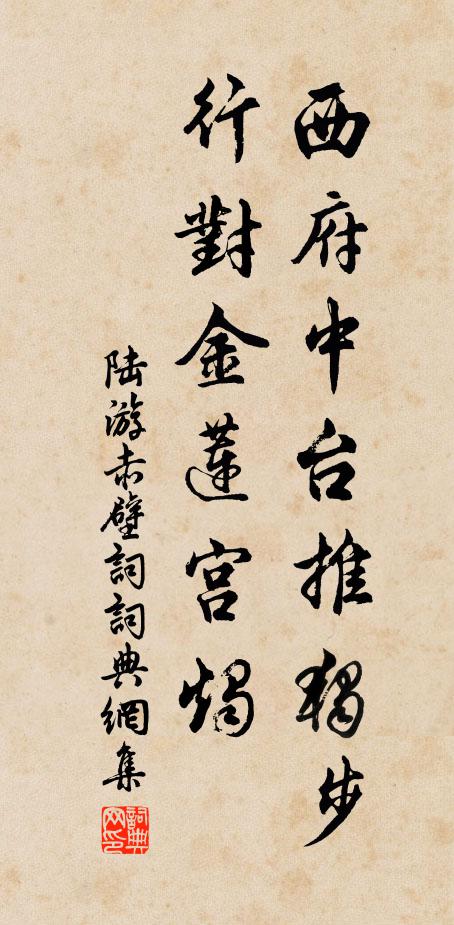 西府中台推獨步
行對金蓮宮燭
陸游赤壁詞詞典網集
詞典网印